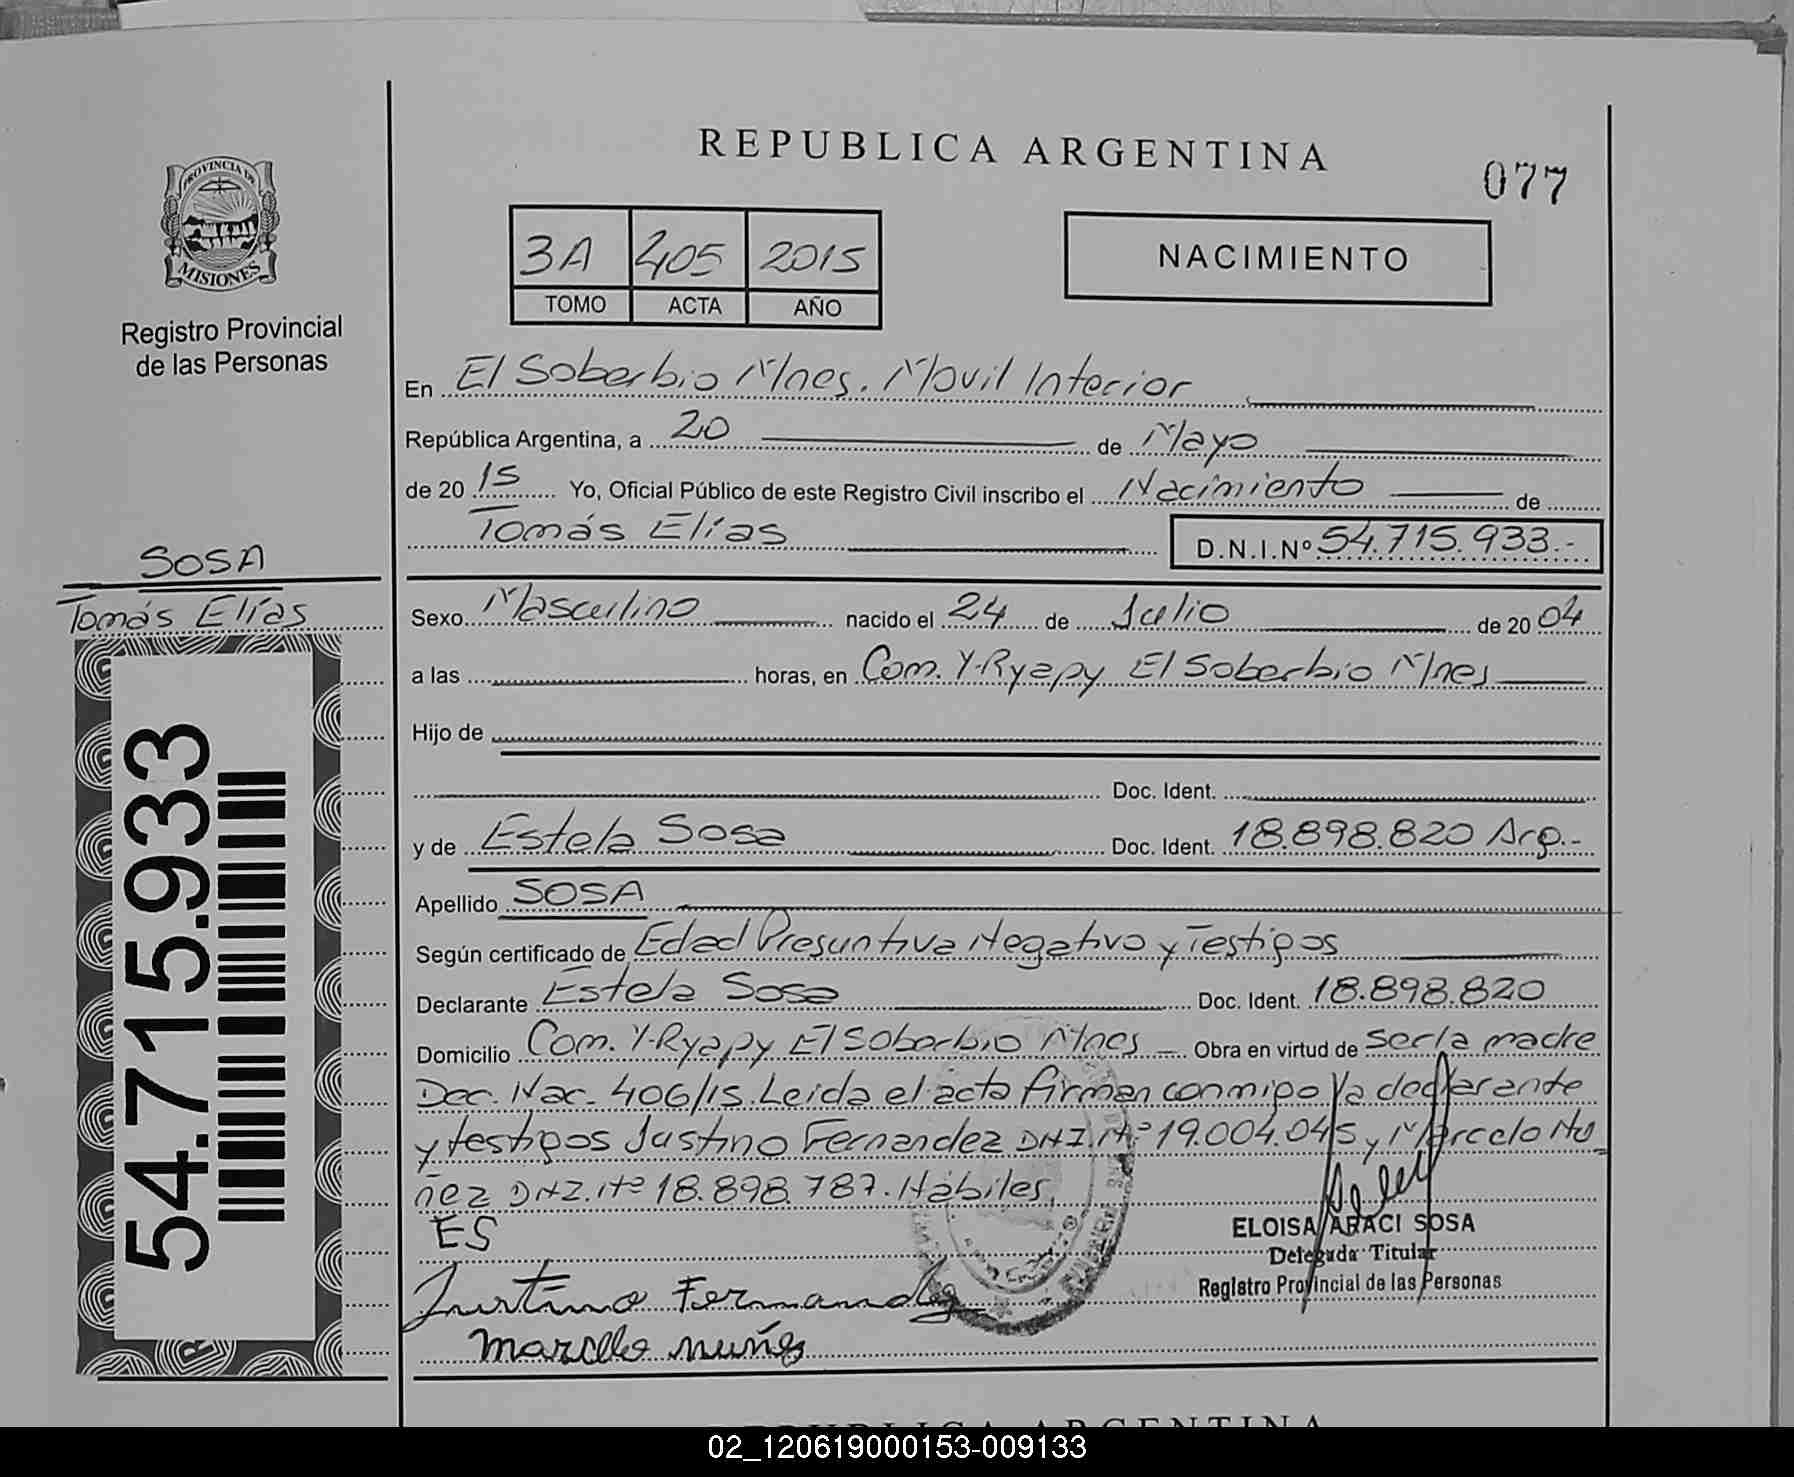 REPUBLICA ARGENTINA
077
PROVINCIA DE
MISIONES
Registro Provincial
de las Personas
3A 405 2015
TOMO ACTA AÑO
NACIMIENTO
En El Soberbio Mnes. Movil Interior
República Argentina, a 20 de Mayo
de 20 15 Yo, Oficial Público de este Registro Civil inscribo el Nacimiento de
Tomás Elías D.N.I.Nº 54.715.933.-
SOSA
Tomás Elías
54.715.933
Sexo Masculino nacido el 24 de Julio de 20 04
a las horas, en Com. Y-Ryapy El Soberbio Mnes
Hijo de
Doc. Ident.
y de Estela Sosa Doc. Ident. 18.898.820 Arg.-
Apellido SOSA
Según certificado de Edad Presuntiva Negativo y Testigos
Declarante Estela Sosa Doc. Ident. 18.898.820
Domicilio Com. Y-Ryapy El Soberbio Mnes Obra en virtud de ser la madre
Dec. Nac. 406/15. Leida el acta firman conmigo la declarante
y testigos Justino Fernandez DNI.Nº 19.004.045 y Marcelo Nu
ñez DNI.Nº 18.898.787. Habiles
ES
Justino Fernandez
marcelo nuñez
ELOISA ARACI SOSA
Delegada Titular
Registro Provincial de las Personas
REPUBLICA ARGENTINA
02_120619000153-009133